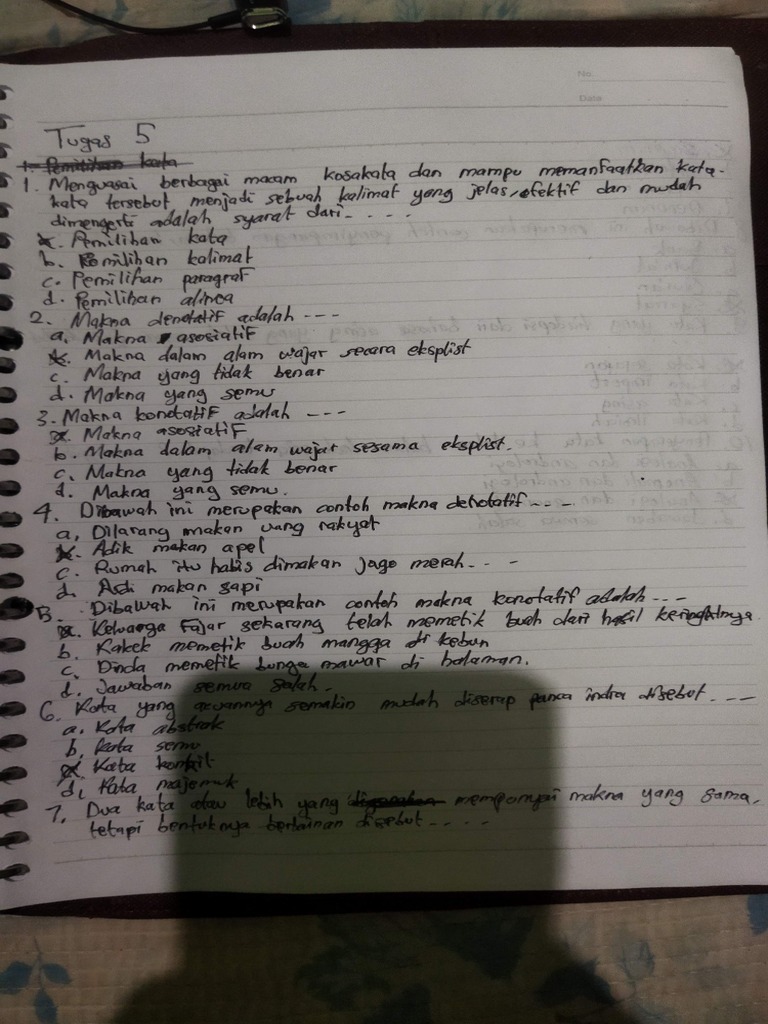 No.
Date
Tugas 5
1. Pemilihan kata
1. Menguasai berbagai macam kosakata dan mampu memanfaatkan kata-
kata tersebut menjadi sebuah kalimat yang jelas, efektif dan mudah
dimengerti adalah syarat dari. . . .
a. Pemilihan kata
b. Pemilihan kalimat
c. Pemilihan paragraf
d. Pemilihan alinea
2. Makna denotatif adalah ---
a. Makna asosiatif
b. Makna dalam alam wajar secara eksplist
c. Makna yang tidak benar
d. Makna yang semu
3. Makna konotatif adalah ---
a. Makna asosiatif
b. Makna dalam alam wajar sesama eksplist.
c. Makna yang tidak benar
d. Makna yang semu.
4. Dibawah ini merupakan contoh makna denotatif - - -
a. Dilarang makan uang rakyat
b. Adik makan apel
c. Rumah itu habis dimakan jago merah. - -
d. Asdi makan sapi
5. Dibawah ini merupakan contoh makna konotatif adalah ---
a. Keluarga Fajar sekarang telah memetik buah dari hasil keringatnya
b. Kakek memetik buah mangga di kebun
c. Dinda memetik bunga mawar di halaman.
d. Jawaban semua salah.
6. Kata yang acuannya semakin mudah diserap panca indra disebut. ---
a. Kata abstrak
b. Kata semu
c. Kata
d. Kata majemuk
7. Dua kata atau lebih yang mempunyai makna yang sama,
tetapi bentuknya berlainan disebut . . . .